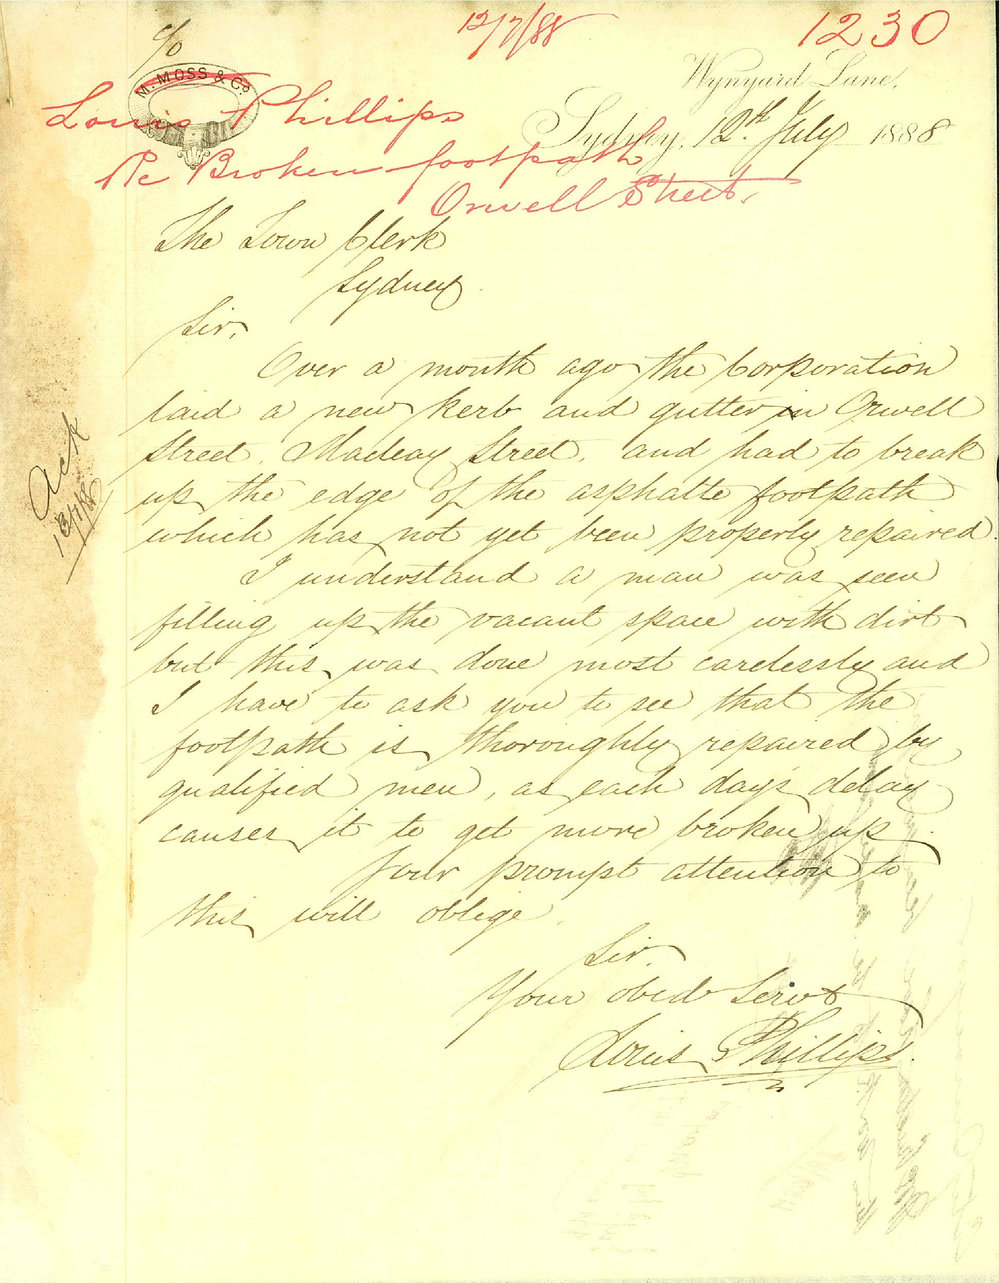 12/7/88
1230
c/o
M. MOSS & Co.
Wynyard Lane,
Sydney, 12th July 1888
Louis Phillips
Re Broken footpath
Orwell Street.
The Town Clerk
Sydney.
Sir,
Over a month ago the Corporation
laid a new kerb and gutter in Orwell
Street, Macleay Street, and had to break
up the edge of the asphalte footpath
which has not yet been properly repaired.
I understand a man was seen
filling up the vacant space with dirt
but this was done most carelessly and
I have to ask you to see that the
footpath is thoroughly repaired by
qualified men, as each day's delay
causes it to get more broken up.
Your prompt attention to
this will oblige.
Sir
Your obedt Servt
Louis Phillips.
Ack
13/7/88